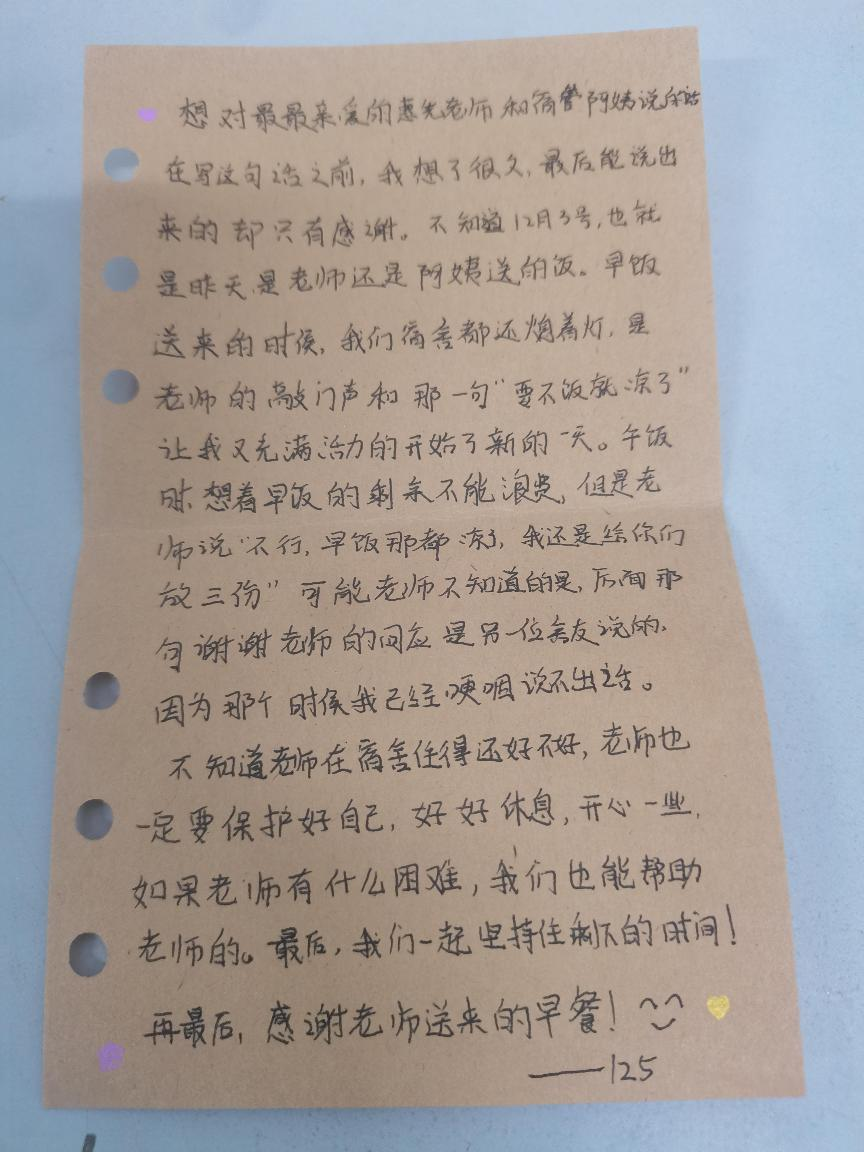 想对最最亲爱的惠先老师和宿管阿姨说的话
在写这句话之前，我想了很久，最后能说出
来的却只有感谢。不知道12月3号，也就
是昨天是老师还是阿姨送的饭。早饭
送来的时候，我们宿舍都还熄着灯，是
老师的敲门声和那一句“要不饭就凉了”
让我又充满活力的开始了新的一天。午饭
时，想着早饭的剩余不能浪费，但是老
师说“不行，早饭那都凉了，我还是给你们
放三份”可能老师不知道的是，后面那
句谢谢老师的回应是另一位舍友说的，
因为那个时候我已经哽咽说不出话。
不知道老师在宿舍住得还好不好，老师也
一定要保护好自己，好好休息，开心一些，
如果老师有什么困难，我们也能帮助
老师的。最后，我们一起坚持住剩下的时间！
再最后，感谢老师送来的早餐！
——125